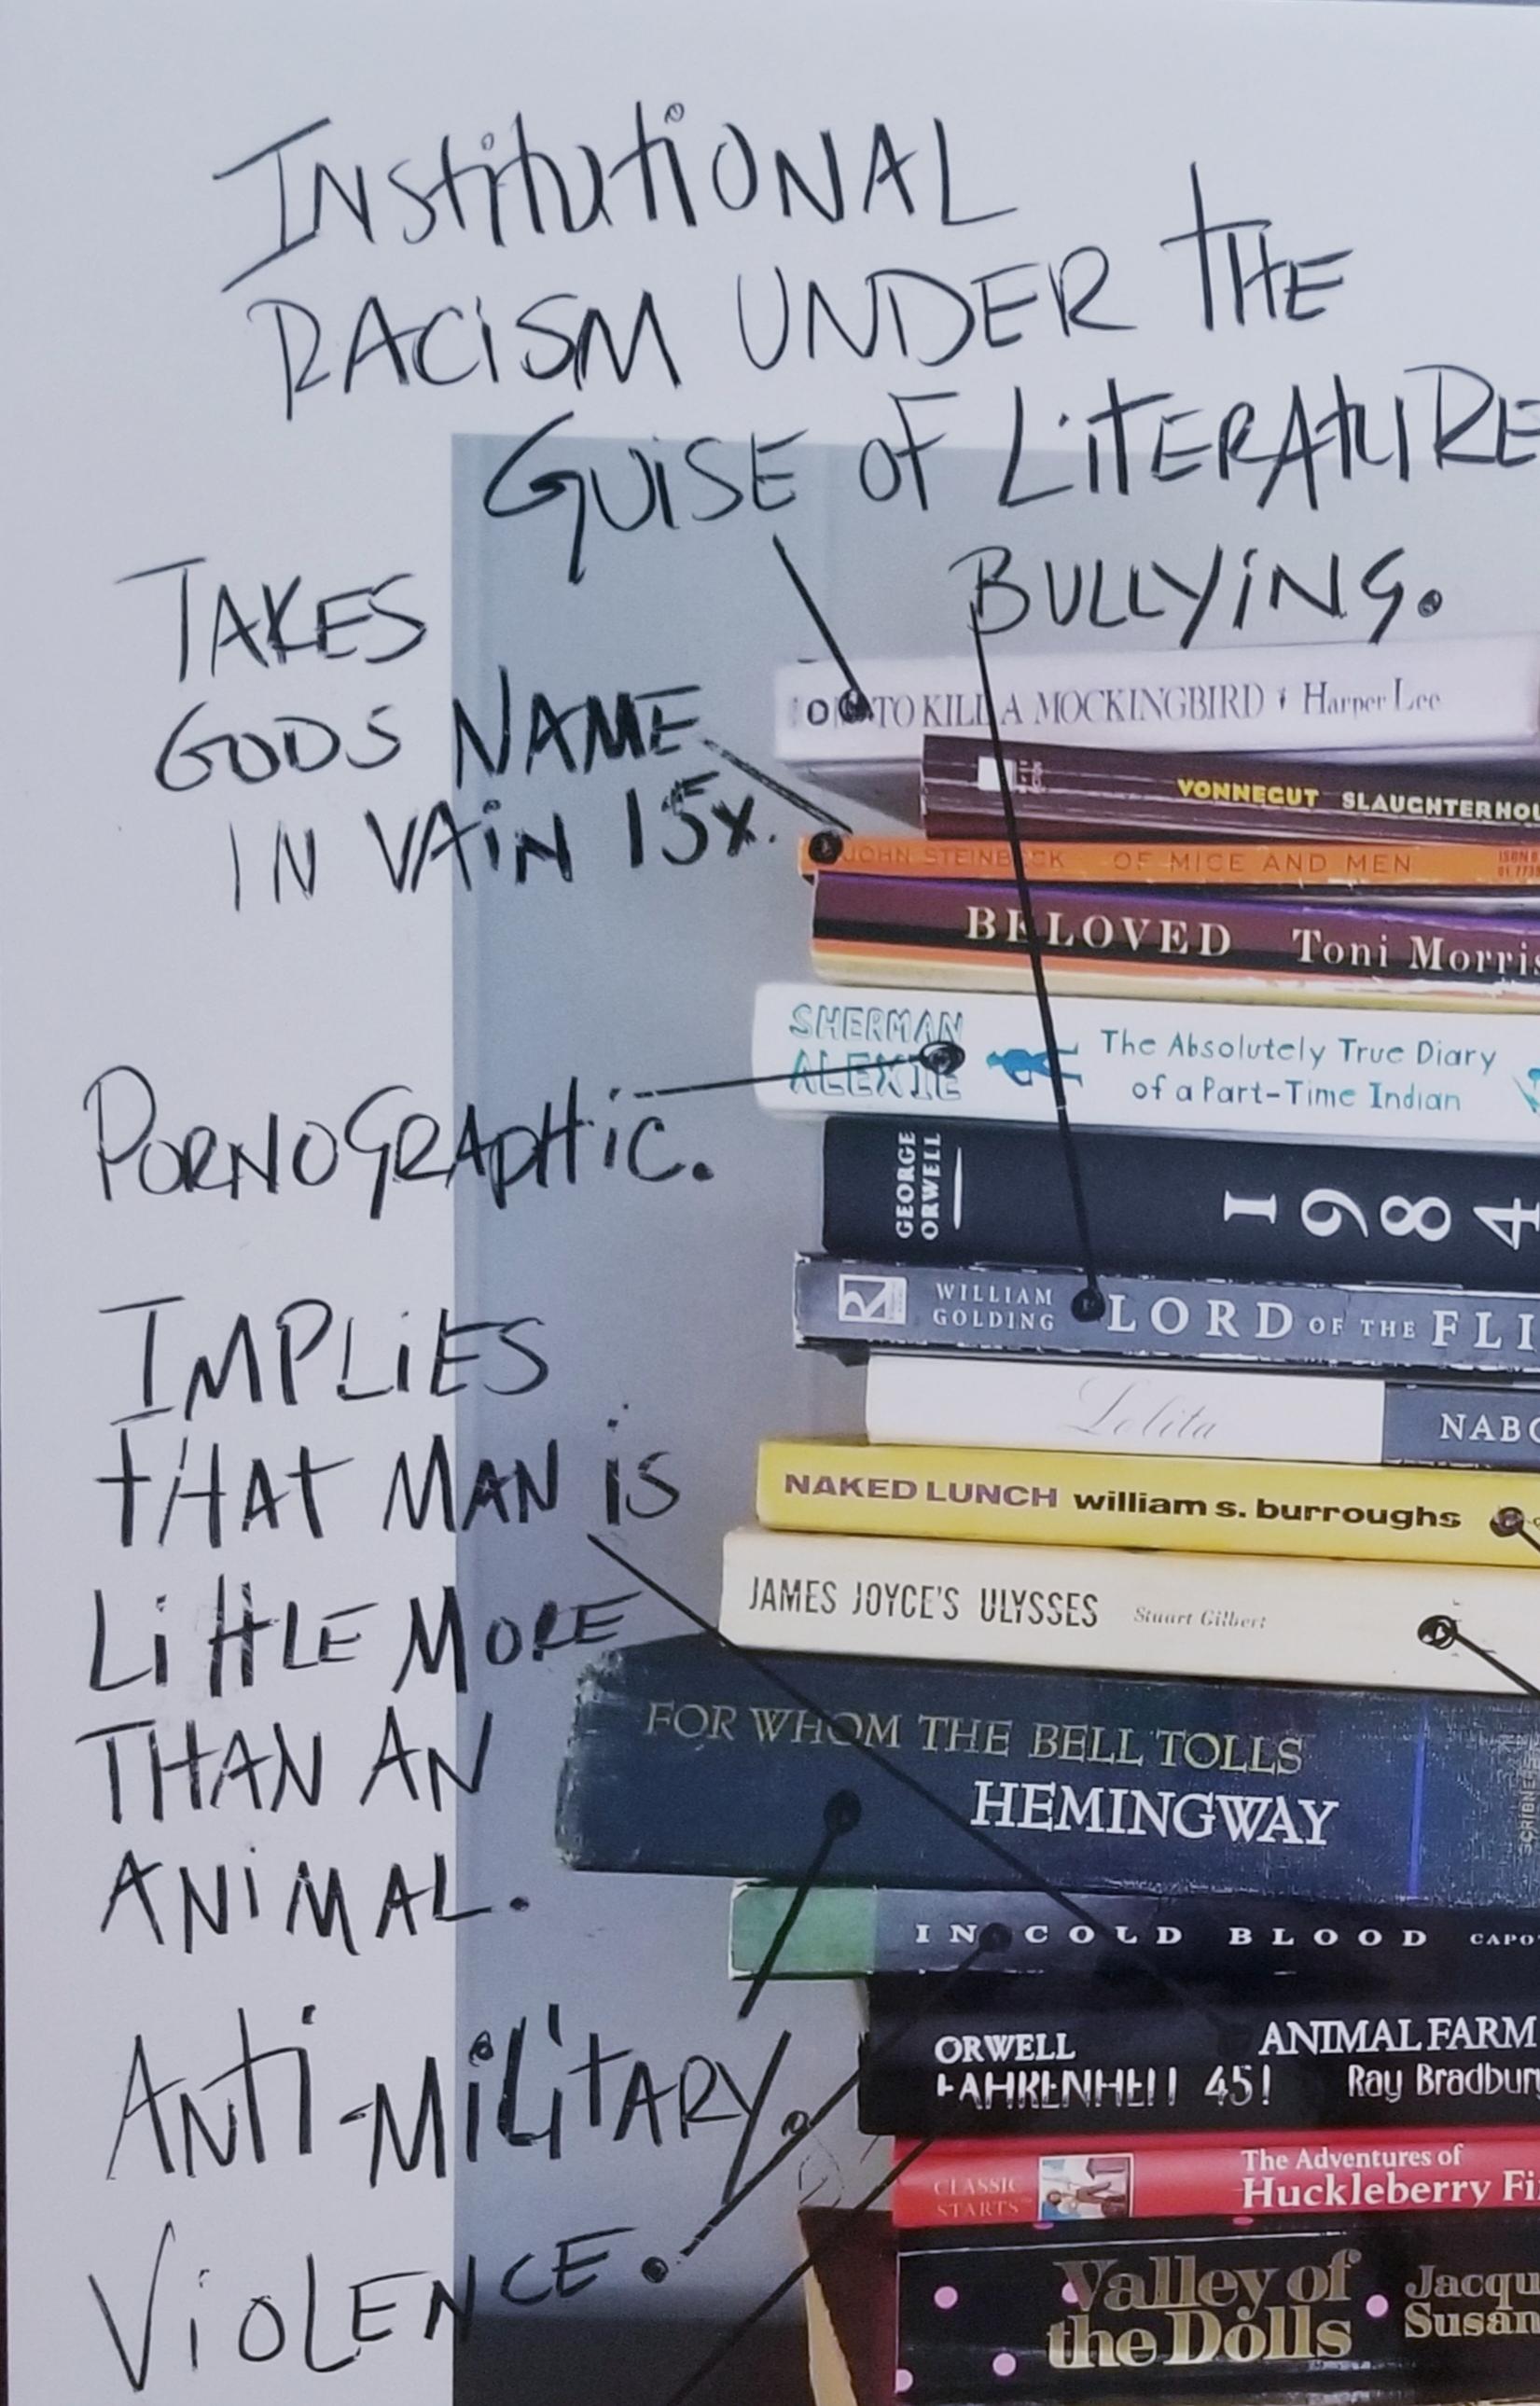 INSTITUTIONAL
RACISM UNDER THE
GUISE OF LITERATURE
BULLYING.
TAKES
GODS NAME
IN VAIN 15X.
TO KILL A MOCKINGBIRD Harper Lee
VONNEGUT SLAUGHTERHOU
JOHN STEINBECK OF MICE AND MEN
BELOVED Toni Morris
SHERMAN
ALEXIE
The Absolutely True Diary
of a Part-Time Indian
PORNOGRAPHIC.
GEORGE
ORWELL
1984
WILLIAM
GOLDING
LORD OF THE FLI
IMPLIES
THAT MAN IS
LITTLE MORE
THAN AN
ANIMAL.
Lolita NABO
NAKED LUNCH william s. burroughs
JAMES JOYCE'S ULYSSES Stuart Gilbert
FOR WHOM THE BELL TOLLS
HEMINGWAY
IN COLD BLOOD CAPO
ANTI-MILITARY.
ORWELL ANIMAL FARM
FAHRENHEIT 451 Ray Bradbur
VIOLENCE.
CLASSIC
STARTS
The Adventures of
Huckleberry Fi
Valley of
the Dolls
Jacqu
Susan